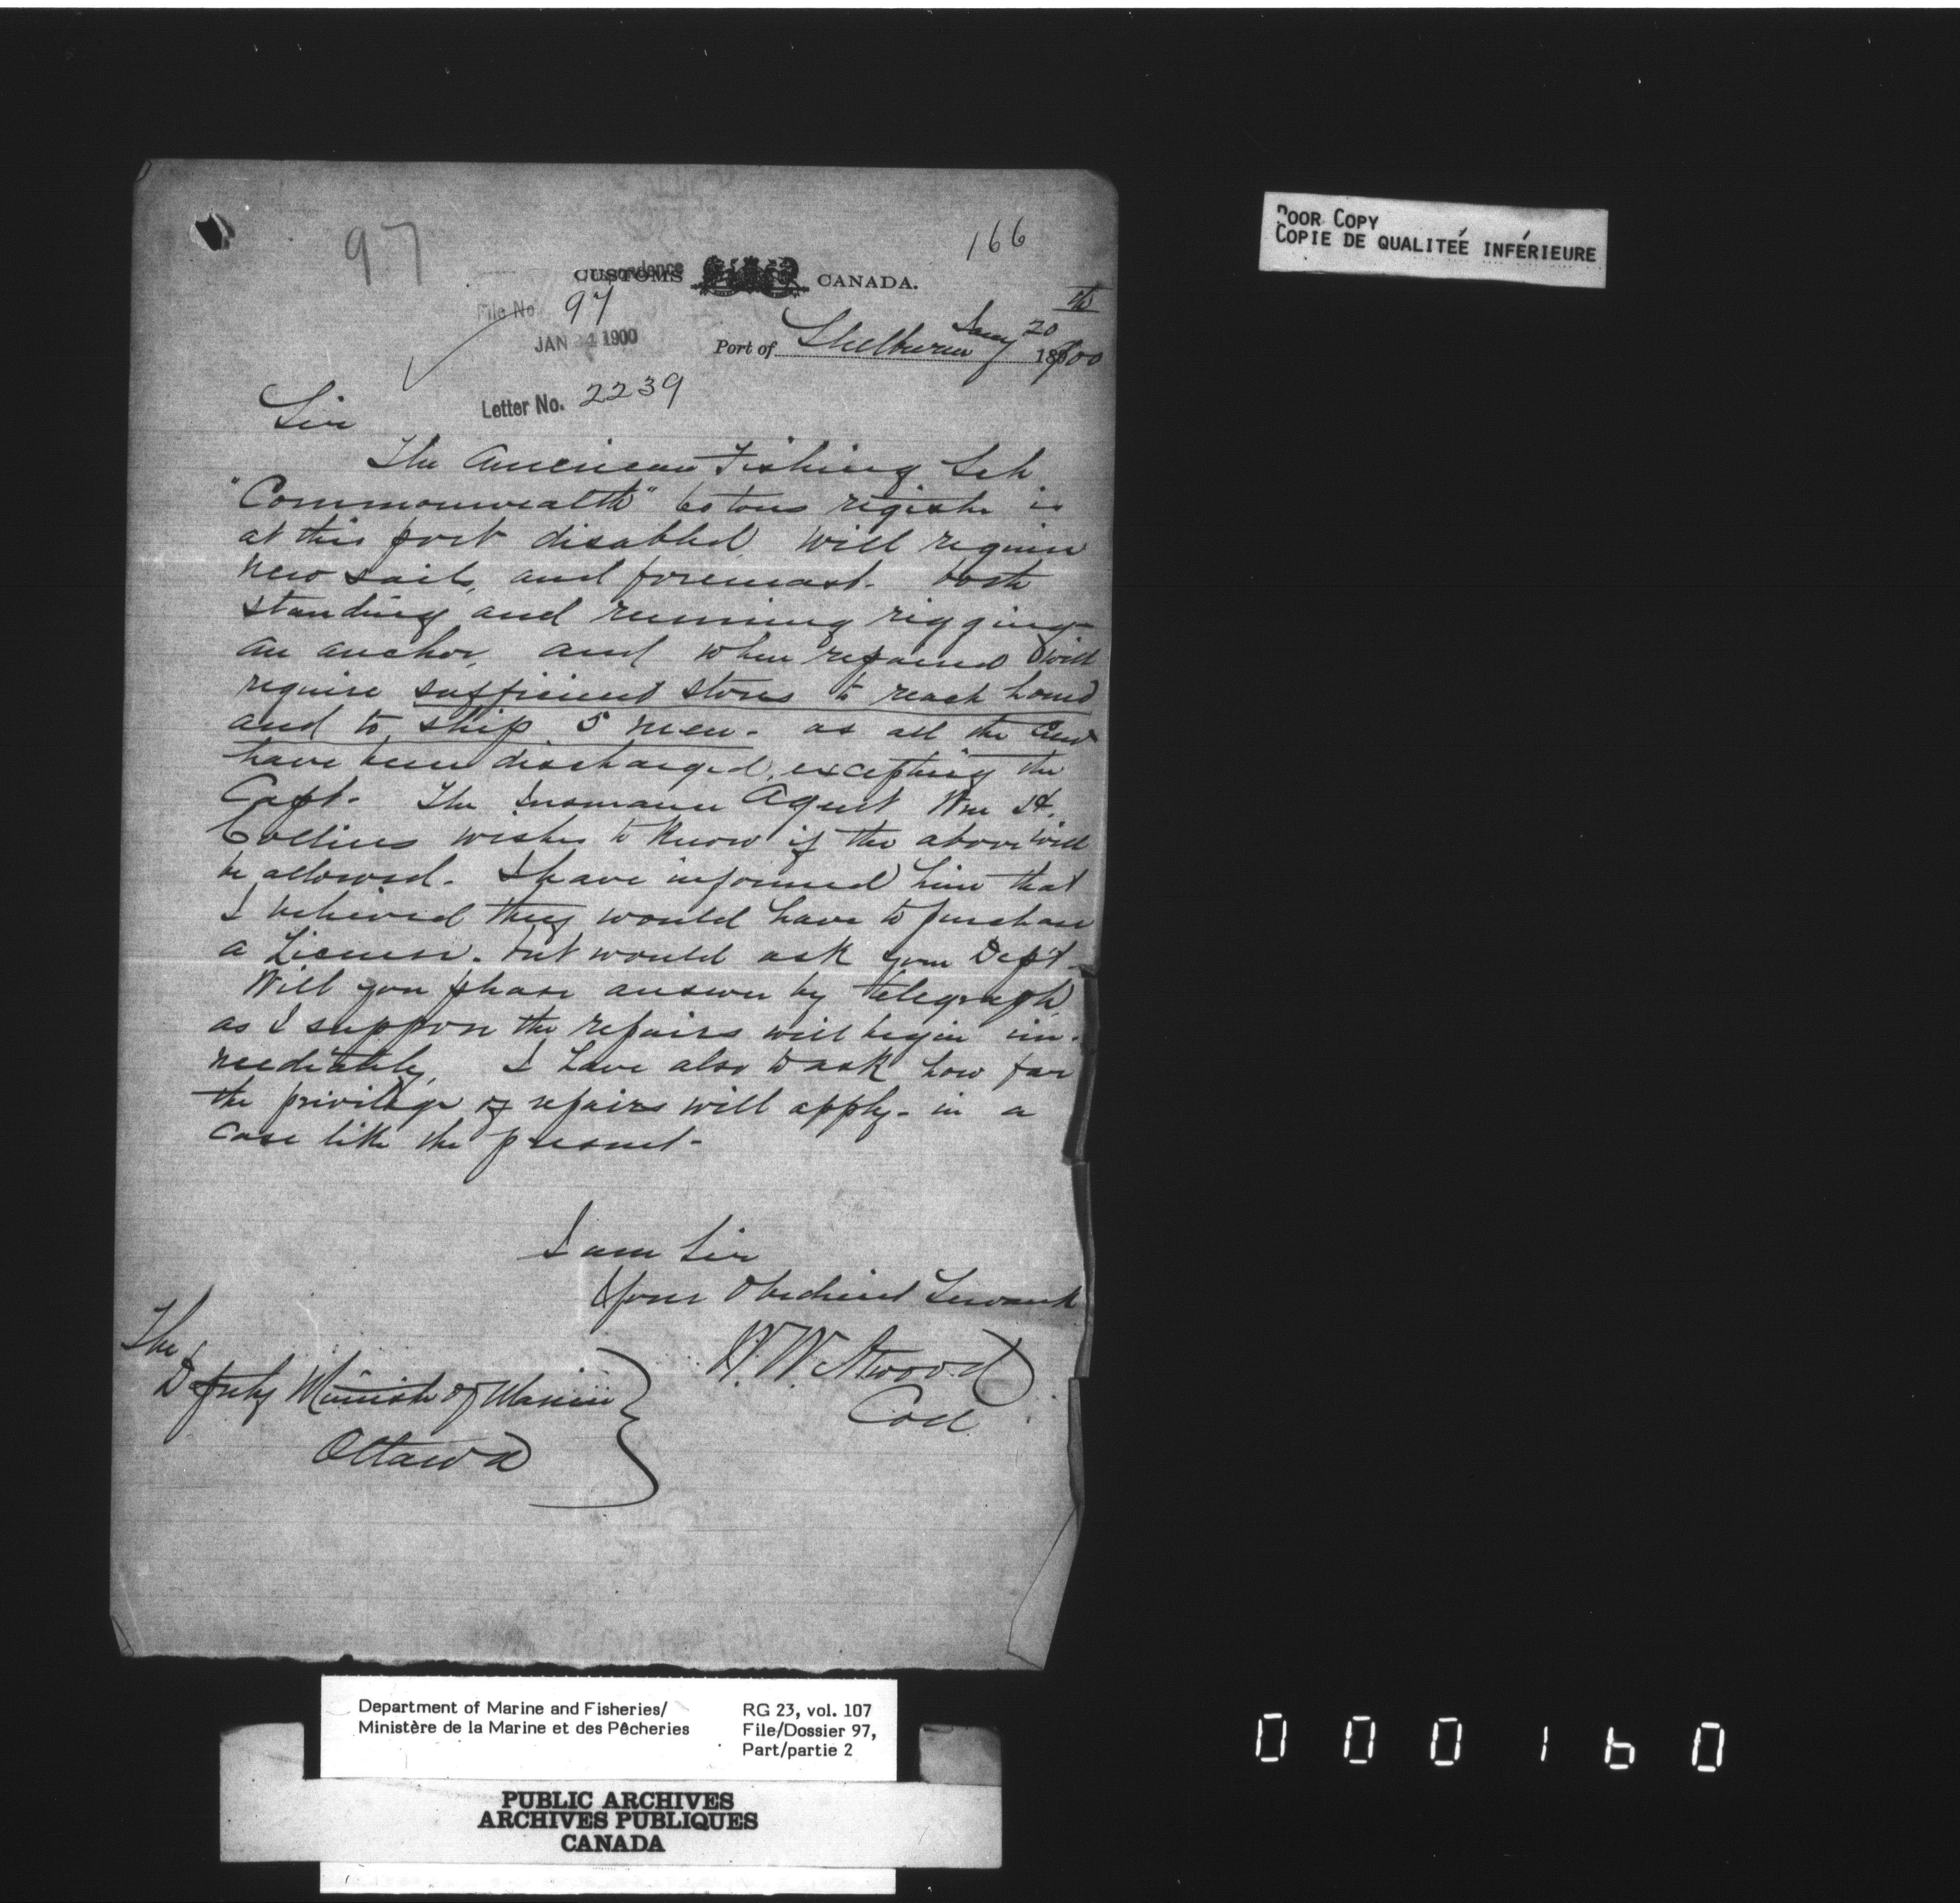 POOR COPY
COPIE DE QUALITEÉ INFÉRIEURE
97
166
CUSTOMS CANADA.
File No 97
JAN 24 1900
Port of Shelburne Jany 20th 1900
Letter No. 2239
Sir
The American Fishing Sch
"Commonwealth" tons register is
at this port disabled, will require
new sails, and foremast. both
standing and running rigging
an anchor, and when repaired will
require sufficient stores to reach home
and to ship 5 men. as all the crew
have been discharged, excepting the
Capt. The Insurance Agent Wm
Collins wishes to know if the above will
be allowed. I have informed him that
I believed they would have to purchase
a License. but would ask your Dept.
Will you please answer by telegraph,
as I suppose the repairs will begin im-
mediately, I have also to ask how far
the privilege of repairs will apply. in a
case like the present-
I am Sir
Your Obedient Servant
W. W. Atwood
Coll
The
Deputy Minister of Marine
Ottawa
Department of Marine and Fisheries/
Ministère de la Marine et des Pêcheries
RG 23, vol. 107
File/Dossier 97,
Part/partie 2
PUBLIC ARCHIVES
ARCHIVES PUBLIQUES
CANADA
000160